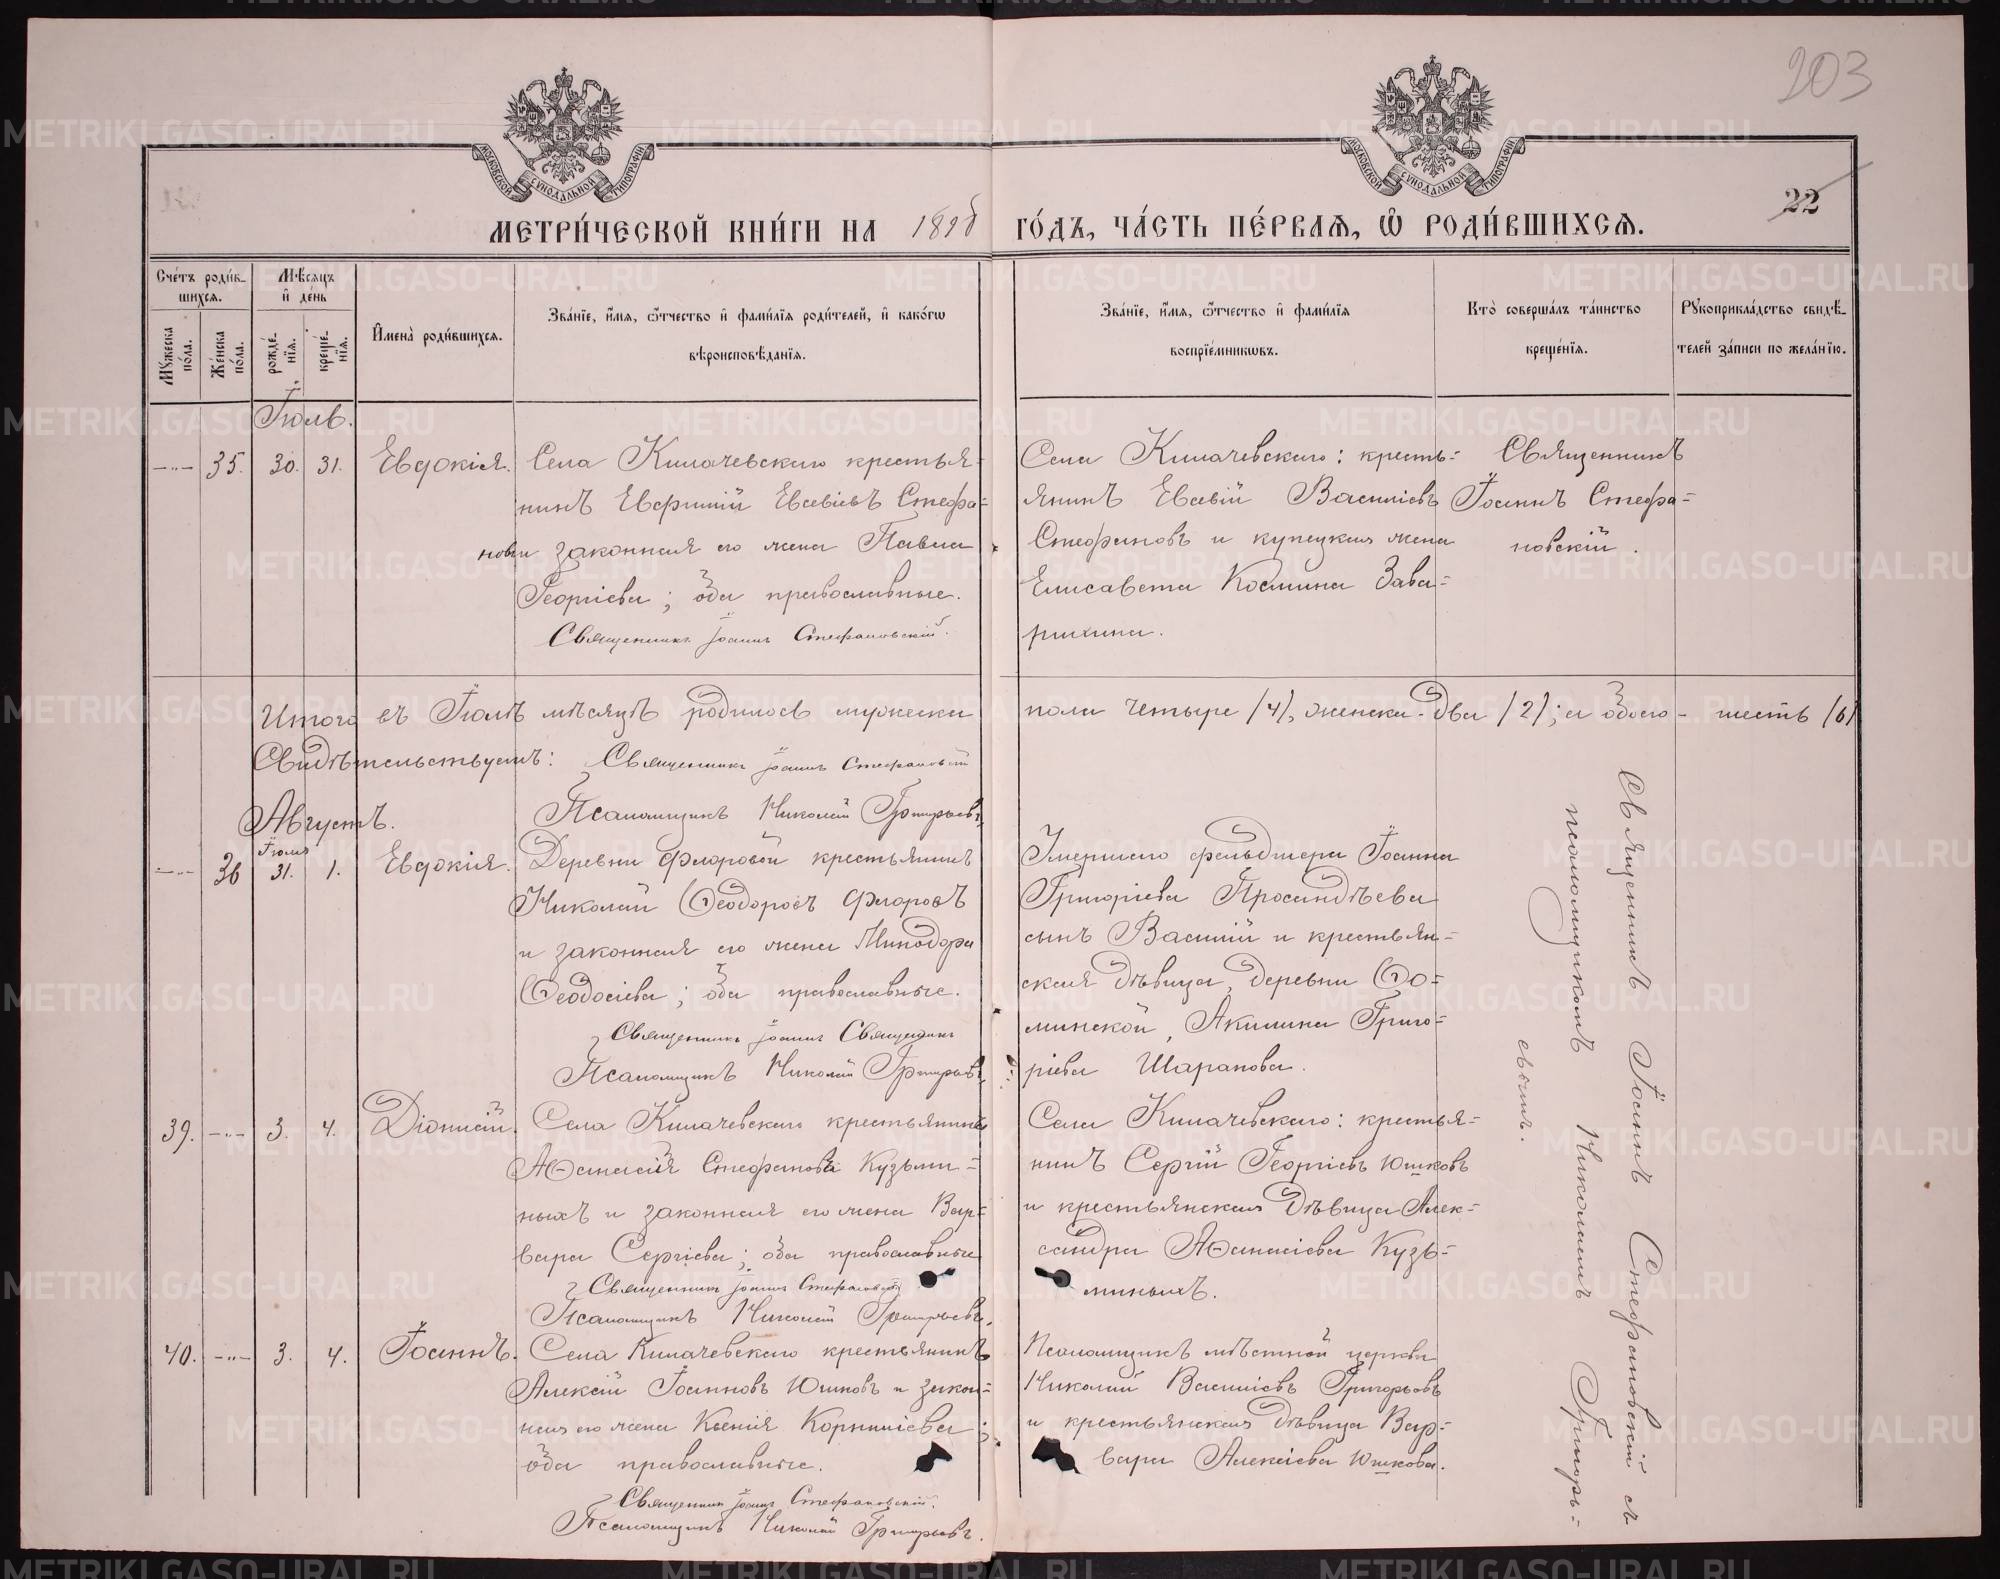 203
МОСКОВСКОЙ СУНОДАЛЬНОЙ ТИПОГРАФІИ
МОСКОВСКОЙ СУНОДАЛЬНОЙ ТИПОГРАФІИ
22
МЕТРИ́ЧЕСКОЙ КНИ́ГИ НА 1898 ГО́ДЪ, ЧА́СТЬ ПЕ́РВАѦ, Ѡ҆ РОДИ́ВШИХСѦ.
Сче́тъ роди́в-
шихсѧ.
Мꙋжеска по́ла.
Же́нска по́ла.
Мѣ́сѧцъ и҆ де́нь
рожде́-нїѧ.
креще́-нїѧ.
И҆мена̀ роди́вшихсѧ.
Зва́нїе, и҆́мѧ, ѻ҆́тчество и҆ фами́лїѧ роди́телей, и҆ како́гѡ
вѣроисповѣ́данїѧ.
Зва́нїе, и҆́мѧ, ѻ҆́тчество и҆ фами́лїѧ
воспрїе́мникѡвъ.
Кто̀ соверша́лъ та́инство
креще́нїѧ.
Рꙋкоприкла́дство свидѣ́-
телей за́писи по жела́нїю.
Іюль.
35. 30. 31. Евдокія.
Села Килачевскаго крестья-
нинъ Евфимій Евсевіевъ Стефа-
новъ и законная его жена Павла
Георгіева; оба православные.
Священникъ Іоаннъ Стефановскій.
Села Килачевскаго: кресть-
янинъ Евсевій Василіевъ
Стефановъ и купецкая жена
Елисавета Космина Зава-
рихина.
Священникъ
Іоаннъ Стефа-
новскій.
Итого въ Іюлѣ мѣсяцѣ родилось мужеска пола четыре /4/, женска два /2/; а обоего - шесть /6/
Свидѣтельствуемъ: Священникъ Іоаннъ Стефановскій
Псаломщикъ Николай Григорьевъ
Августъ.
36 Іюля 31. 1. Евдокія.
Деревни Флоровой крестьянинъ
Николай Ѳеодоровъ Флоровъ
и законная его жена Минодора
Ѳеодосіева; оба православные.
Священникъ Іоаннъ
Псаломщикъ Николай Григорьевъ
Умершаго фельдшера Іоанна
Григоріева Просандѣева
сынъ Василій и крестьян-
ская дѣвица, деревни Ѳо-
минской, Акилина Григо-
ріева Шарапова.
39. 3. 4. Діонисій.
Села Килачевскаго крестьянинъ
Аѳанасій Стефановъ Кузьми-
ныхъ и законная его жена Вар-
вара Сергіева; оба православные
Священникъ Іоаннъ Стефановскій
Псаломщикъ Николай Григорьевъ.
Села Килачевскаго: крестья-
нинъ Сергій Георгіевъ Юшковъ
и крестьянская дѣвица Алек-
сандра Аѳанасіева Кузь-
миныхъ.
40. 3. 4. Іоаннъ.
Села Килачевскаго крестьянинъ
Алексій Іоанновъ Юшковъ и закон-
ная его жена Ксенія Корниліева;
оба православные.
Священникъ Іоаннъ Стефановскій.
Псаломщикъ Николай Григорьевъ.
Псаломщикъ мѣстной церкви
Николай Василіевъ Григорьевъ
и крестьянская дѣвица Вар-
вара Алексіева Юшкова.
Священникъ Іоаннъ Стефановскій съ
псаломщикомъ Николаемъ Григорь-
евымъ.
METRIKI.GASO-URAL.RU